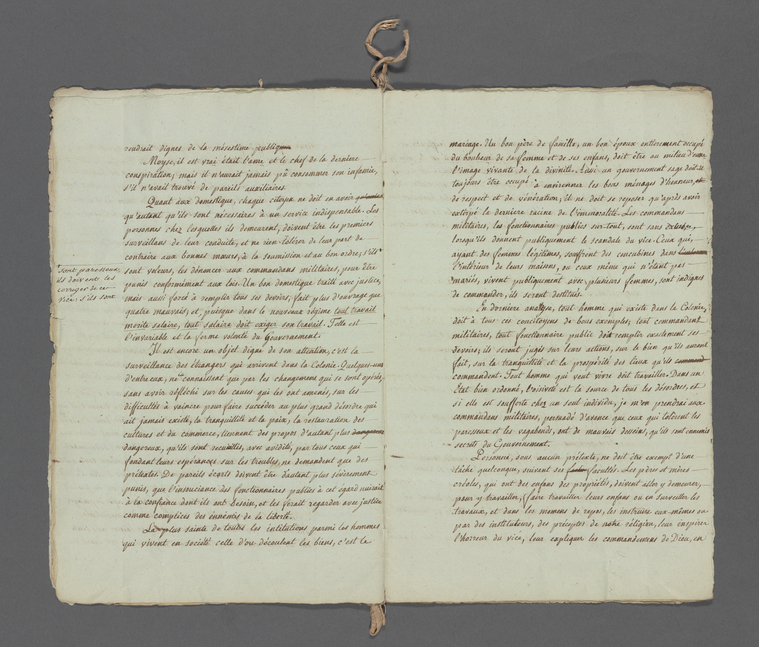 voudrait dignes de la mésestime publique
Moyse, il est vrai était l'ame et le chef de la derniere
conspiration; mais il n'aurait jamais pû consommer son infamie,
s'il n'avait trouvé de pareils auxiliaires.
Quant aux domestique, chaque citoyen ne doit en avoir
qu'autant qu'ils sont nécessaires à un service indispensable. Les
personnes chez lesquelles ils demeurent, doivent être les premiers
surveillans de leur conduite, et ne rien tolérer de leur part de
contraire aux bonnes mœurs, à la soumission et au bon ordre; s'ils
sont paresseux,
ils doivent les
corriger de ce
vice. s'ils sont
sont voleurs, les dénoncer aux commandans militaires, pour être
punis conformément aux lois. Un bon domestique traité avec justice,
mais aussi forcé à remplir tous ses devoirs, fait plus d'ouvrage que
quatre mauvais; et, puisque dans le nouveau régime tout travail
mérite salaire, tout salaire doit exiger son travail. Telle est
l'invariable et la ferme volonté du Gouvernement.
Il est encore un objet digne de son attention, c'est la
surveillance des étrangers qui arrivent dans la Colonie. Quelques-uns
d'entreux, ne connaissent que par les changemens qui se sont opérés,
sans avoir réfléchi sur les causes qui les ont amenés, sur les
difficultés à vaincre pour faire succéder au plus grand désordre qui
ait jamais existé, la tranquillité et la paix, la restauration des
cultures et du commerce, tiennent des propos d'autant plus dangereux
dangereux, qu'ils sont recueillis, avec avidité, par tous ceux qui
fondant leurs espérances sur les troubles, ne demandent que des
prétextes. De pareils écarts doivent être d'autant plus sévèrement
punis, que l'insouciance des fonctionnaires publics à cet égard nuirait
à la confiance dont ils ont besoin, et les ferait regarder avec justice
comme complices des ennemis de la liberté.
La plus sainte de toutes les institutions parmi les hommes
qui vivent en société celle d'ou découlent les biens, c'est le
mariage. Un bon père de famille, un bon époux entierement occupé
du bonheur de sa femme et de ses enfans, doit être au milieu d'eux
l'image vivante de la divinité. Aussi un gouvernement sage doit-il
toujours être occupé à environner les bons ménages d'honneur,
de respect et de vénération; il ne doit se reposer qu'après avoir
extirpé la derniere racine de l'immoralité. Les commandans
militaires, les fonctionnaires publics sur tout, sont sans excuse,
lorsqu'ils donnent publiquement le scandale du vice. Ceux qui,
ayant des femmes légitimes, souffrent des concubines dans
l'intérieur de leurs maisons, ou ceux même qui n'étant pas
mariés, vivent publiquement avec plusieurs femmes, sont indignes
de commander; ils seront destitués.
En derniere analyse, tout homme qui existe dans la Colonie,
doit à tous ces concitoyens de bons exemples; tout commandant
militaires, tout fonctionnaire public doit remplir exactement ses
devoirs; ils seront jugés sur leurs actions, sur le bien qu'ils auront
fait, sur la tranquillité et la prospérité des lieux qu'ils
commandent. Tout homme qui veut vivre doit travailler. Dans un
Etat bien ordonné, l'oisiveté est la source de tous les désordres, et
si elle est soufferte chez un seul individu, je m'en prendrai aux
commandans militaires, persuadé d'avance que ceux qui tolerent les
paresseux et les vagabonds, ont de mauvais desseins, qu'ils sont ennemis
secrets du Gouvernement.
Personne, sous aucun prétexte, ne doit être exempt d'une
tâche quelconque, suivant ses facultés. Les pères et mères
créoles, qui ont des enfans et des propriétés, doivent aller y demeurer,
pour y travailler, faire travailler leurs enfans ou en surveiller les
travaux, et dans les momens de repos, les instruire eux-mêmes ou
par des instituteurs, des préceptes de notre réligion, leur inspirer
l'horreur du vice, leur expliquer les commandemens de Dieu, en